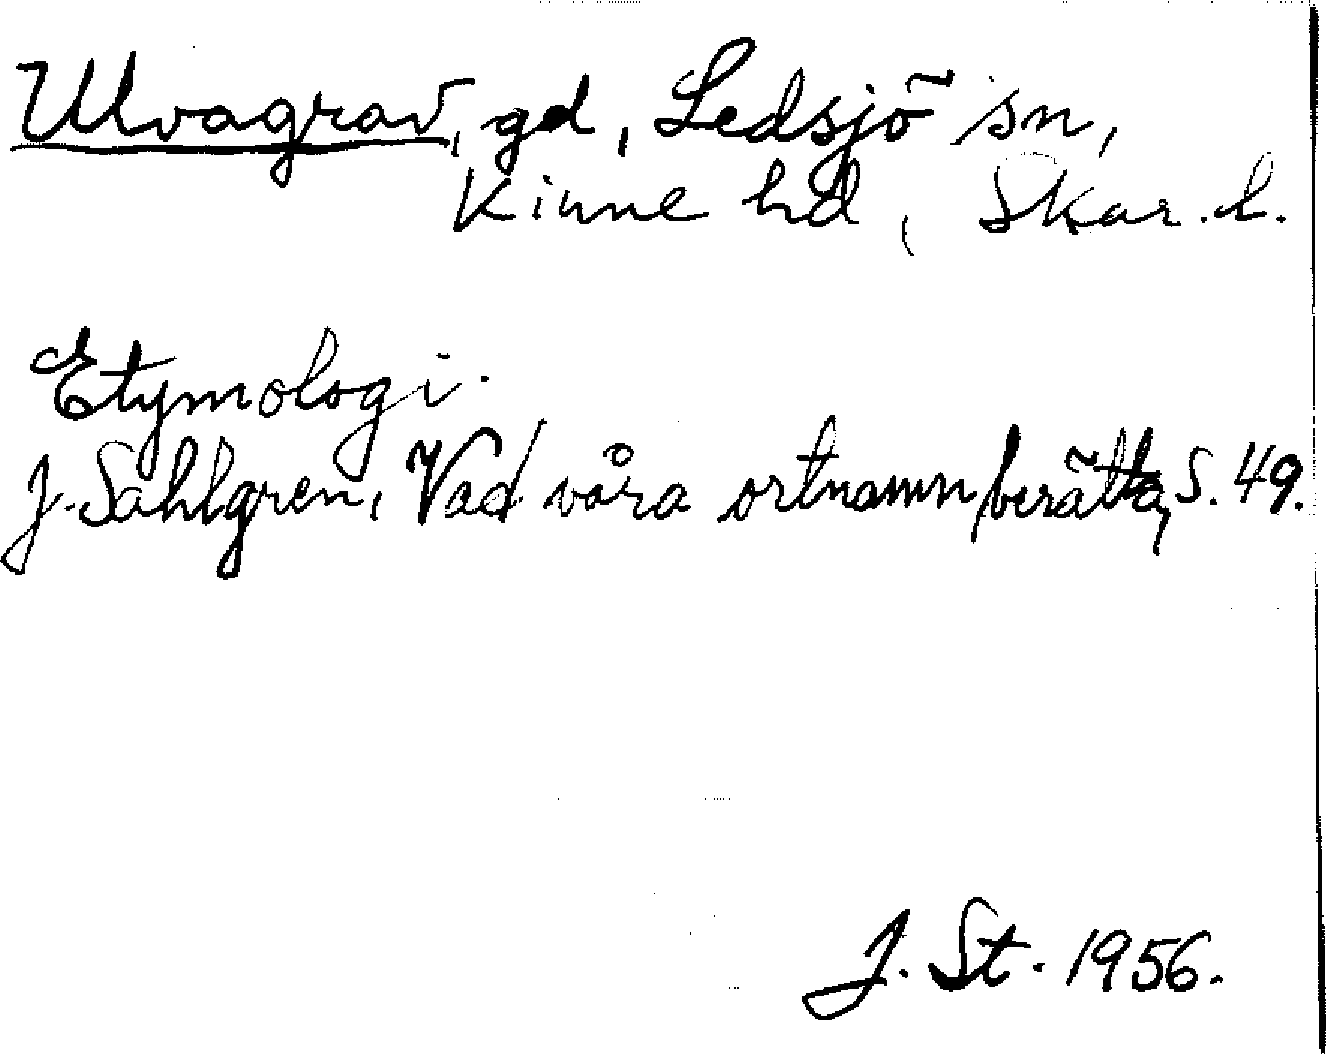 Ulvagrav, gd, Ledsjö sn,
Kinne hd, Skar. l.
Etymologi.
J. Sahlgren, Vad våra ortnamn berätta, S. 49.
J. St. 1956.